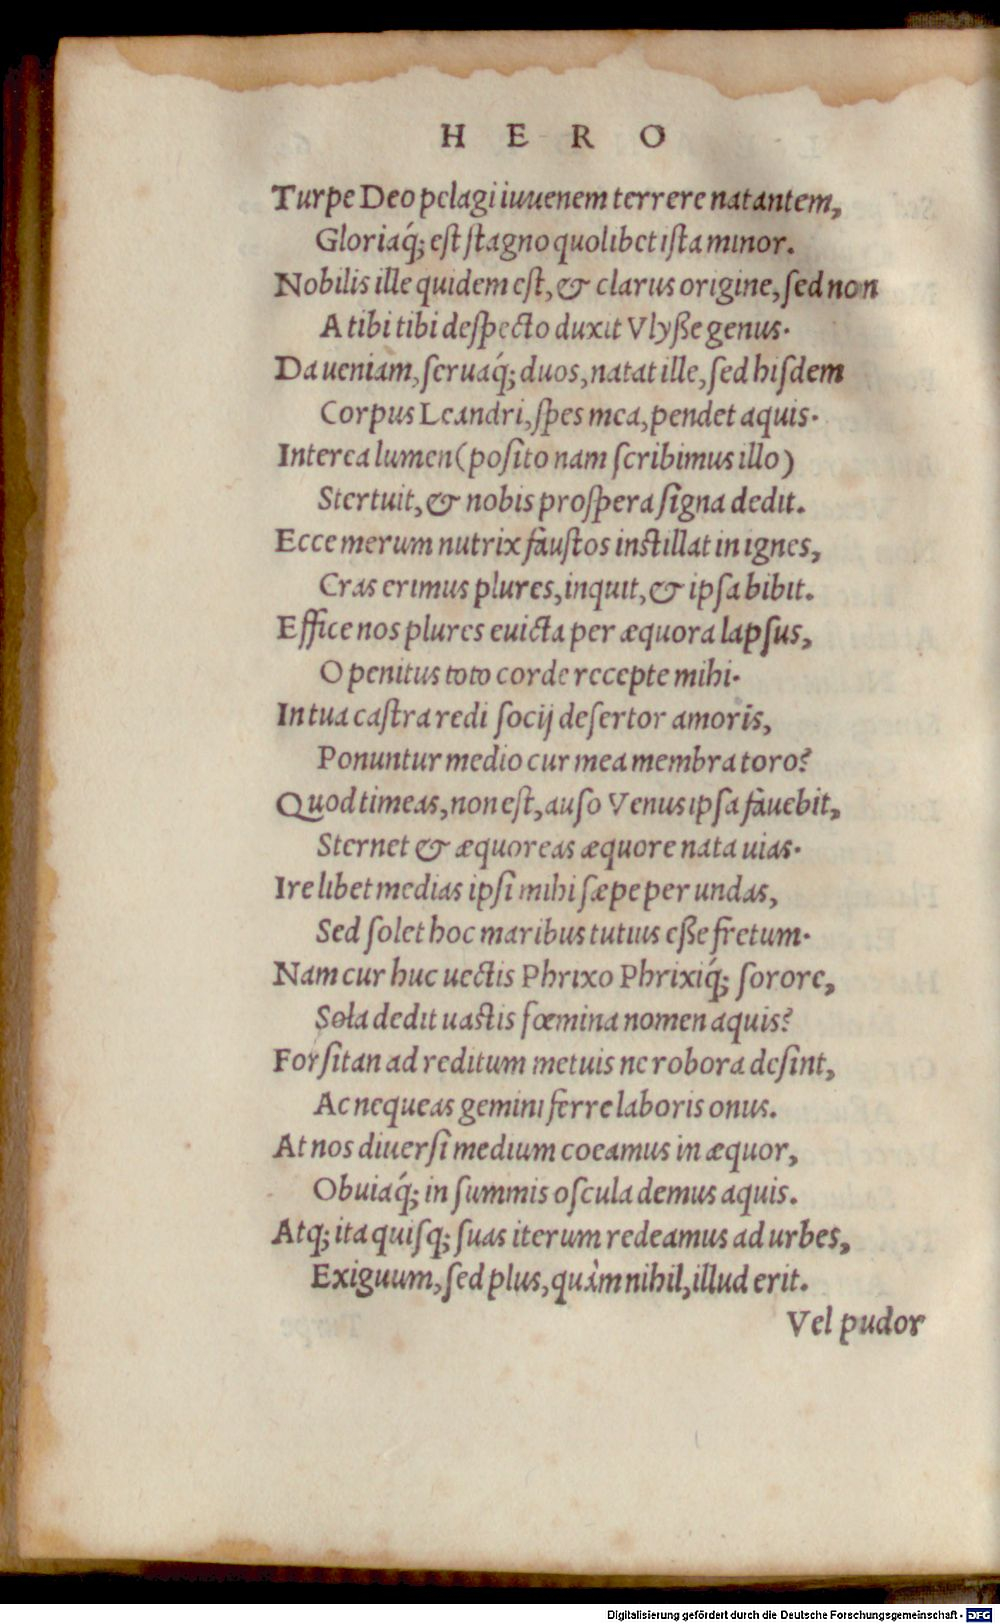 H E R O
Turpe Deo pelagi iuuenem terrere natantem,
Gloriaq́; eſt ſtagno quolibet iſta minor.
Nobilis ille quidem eſt, & clarus origine, ſed non
A tibi tibi deſpecto duxit Vlyße genus.
Da ueniam, ſeruaq́; duos, natat ille, ſed hiſdem
Corpus Leandri, ſpes mea, pendet aquis.
Interea lumen (poſito nam ſcribimus illo)
Stertuit, & nobis proſpera ſigna dedit.
Ecce merum nutrix fauſtos inſtillat in ignes,
Cras erimus plures, inquit, & ipſa bibit.
Effice nos plures euicta per æquora lapſus,
O penitus toto corde recepte mihi.
In tua caſtra redi ſocij deſertor amoris,
Ponuntur medio cur mea membra toro?
Quod timeas, non eſt, auſo Venus ipſa fauebit,
Sternet & æquoreas æquore nata uias.
Ire libet medias ipſi mihi ſæpe per undas,
Sed ſolet hoc maribus tutius eße fretum.
Nam cur huc uectis Phrixo Phrixiq́; ſorore,
Sola dedit uaſtis fœmina nomen aquis?
Forſitan ad reditum metuis ne robora deſint,
Ac nequeas gemini ferre laboris onus.
At nos diuerſi medium coeamus in æquor,
Obuiaq́; in ſummis oſcula demus aquis.
Atq; ita quiſq; ſuas iterum redeamus ad urbes,
Exiguum, ſed plus, quàm nihil, illud erit.
Vel pudor
Digitalisierung gefördert durch die Deutsche Forschungsgemeinschaft - DFG